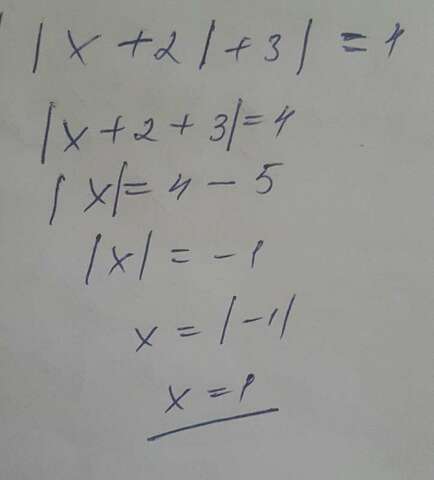 ||x+2|+3|=4
|x+2+3|=4
|x|=4-5
|x|=-1
x=|-1|
x=1